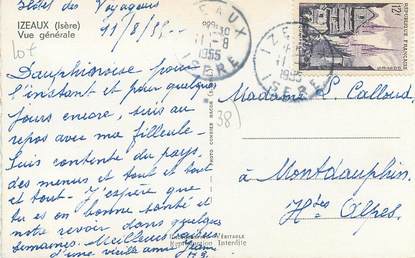 IZEAUX (Isère)
Vue générale
Hôtel des Voyageurs
11/8/55
lot
Dauphinoise pour
l'instant et pour quelques
jours encore, suis au
repos avec ma filleule.
Suis contente du pays,
des menus et tout et
tout. J'espère que
tu es en bonne santé et
notre revoir dans quelques
semaines. Meilleurs
d'une vieille amie
IZEAUX
11-8
1955
ISERE
IZEAUX
11
1955
ISERE
12F
38
Madame L. Calloud
à Montdauphin
Htes Alpes
Reproduction Interdite